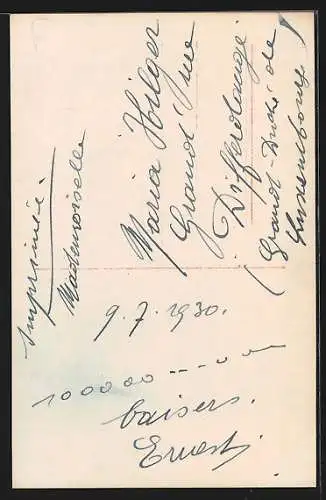 Imprimée.
Mademoiselle
Maria Hilger
Grand' Rue
Differdange
(Grand-Duché de
Luxembourg)
9.7.1930.
100000---
baisers.
Ernest